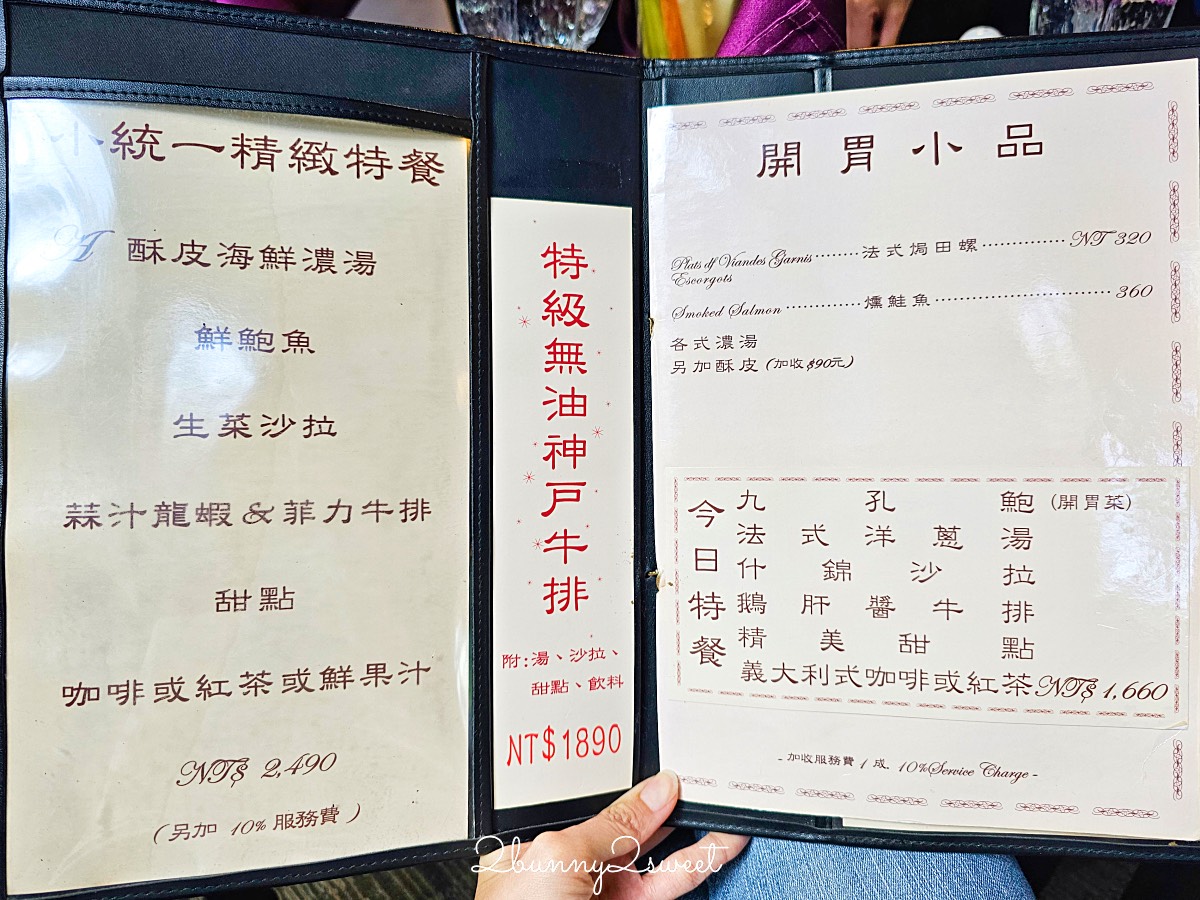 小統一精緻特餐
A 酥皮海鮮濃湯
鮮鮑魚
生菜沙拉
蒜汁龍蝦&菲力牛排
甜點
咖啡或紅茶或鮮果汁
NT$ 2,490
(另加 10% 服務費)
特級無油神戶牛排
附:湯、沙拉、
甜點、飲料
NT$1890
開胃小品
Plats df Viandes Garnis ........ 法式焗田螺 .............. NT 320
Escorgots
Smoked Salmon ............. 燻鮭魚 .............................. 360
各式濃湯
另加酥皮 (加收$90元)
今日特餐
九孔鮑 (開胃菜)
法式洋蔥湯
什錦沙拉
鵝肝醬牛排
精美甜點
義大利式咖啡或紅茶 NT$ 1,660
- 加收服務費 1 成. 10% Service Charge -
2bunny2sweet